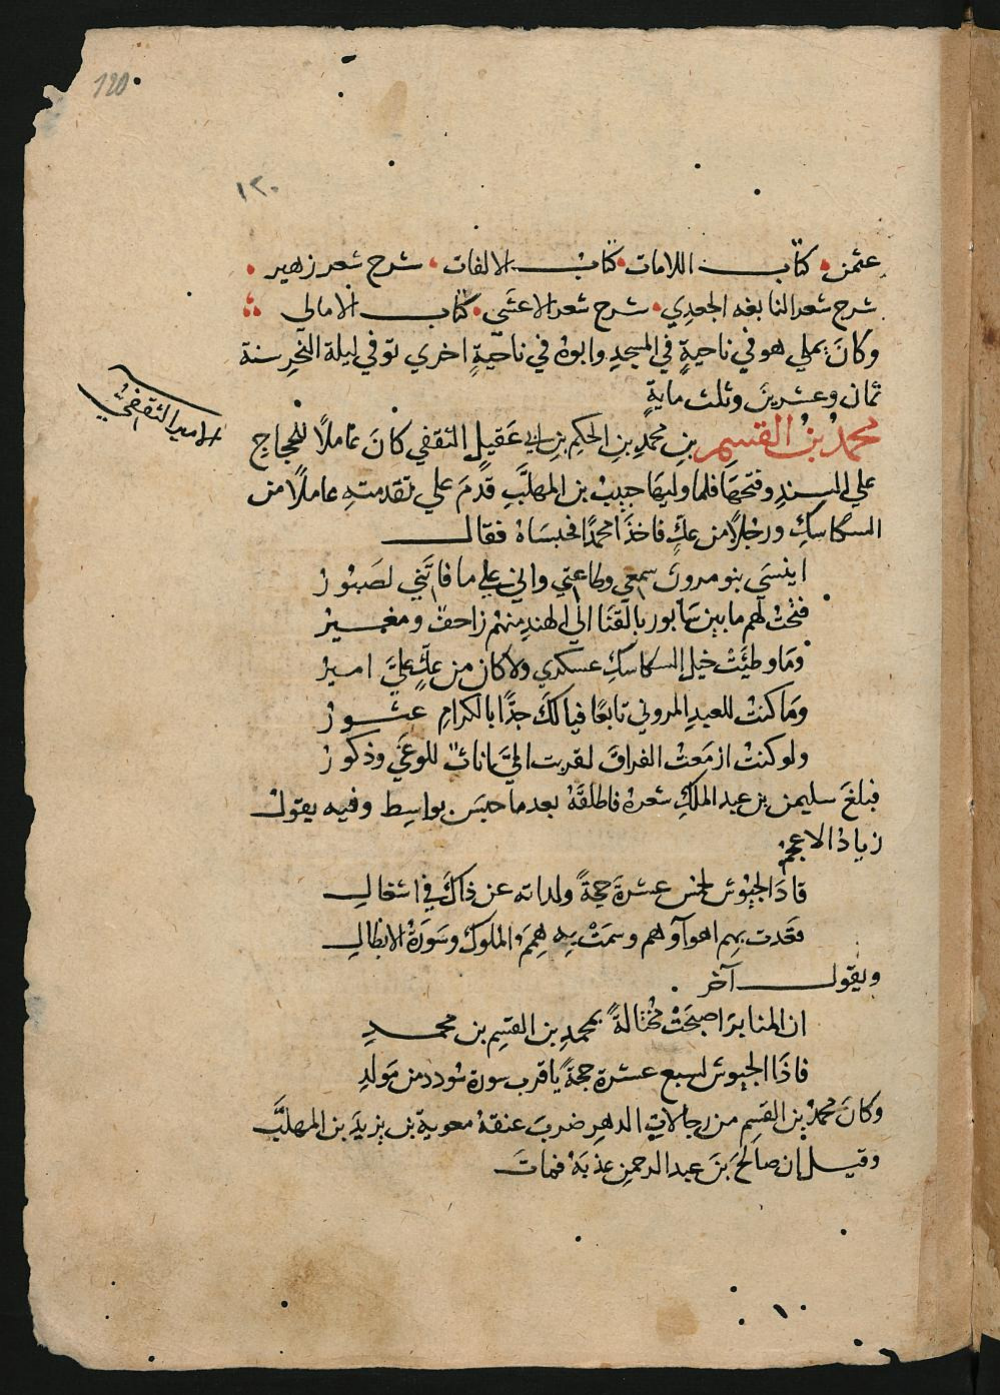 120
١٢٠
عثمن • كتاب اللامات • كتاب الالفات • شرح شعر زهير •
شرح شعر النابغه الجعدي • شرح شعر الاعشى • كتاب الامالى
وكانَ يملي هو في ناحيةٍ في المسجدِ وابوهُ في ناحيةٍ اخري توفي ليلة النحرِ سنة
ثمان وعشرينَ وثلث مايةٍ
الامير الثقفيُّ
محمدُ بنُ القسمِ بنِ محمدِ بنِ الحكمِ بنِ ابي عَقيلٍ الثقفي كانَ عاملًا للحجاجِ
علي السندِ وفتحهَا فلما وليهَا حبيبُ بن المهلَّبِ قدمَ علي تقدمتهِ عاملًا من
السكاسكِ ورجلًا من عكٍّ فاخذَا محمدًا فحبسَاهُ فقالـ
اينسَى بنو مرونَ سمعي وطاعتي واني علي ما فاتني لصَبُورُ
فتحتُ لهم ما بين سَابور بالقَنَا الي الهندِ منهُم زاحفٌ ومغـيرُ
ومَا وطئَتْ خيل السكاسكِ عسكري ولا كان من عكٍّ عليَّ اميرُ
ومَا كنتُ للعبدِ المزوني تابعًا فيا لكَ جدًّا بالكرامِ عثورُ
ولو كنتُ ازمَعتُ الفراقَ لقربت اليَّ اناثٌ للوغَي وذكورُ
فبلغَ سليمن بن عبد الملكِ شعرهُ فاطلقَهُ بعد ما حبسَ بواسِط وفيه يقولُ
زيادُ الاعجمُ
قادَ الجيُوش لخمس عشرةَ حجةً ولداته عن ذاكَ في اشغالِ
فقدت بهم اهوآوهم وسمَتْ بِه هِممُ الملوك وسَورَةُ الابطالِ
ويَقولـ آخر .
ان المنابرَ اصبحَتْ مُختالةً بمحمدِ بن القسِم بن محمدِ
قادَ الجيوش لسبع عشرة حجةً يا قرب سورة سُودد من مَولدِ
وكانَ محمدُ بن القسِم من رجالاتِ الدهرِ ضربَ عنقهُ معوية بن يزيدَ بن المهلَّبِ
وقيـل ان صالحَ بنَ عبد الرحمن عذبهُ فماتَ